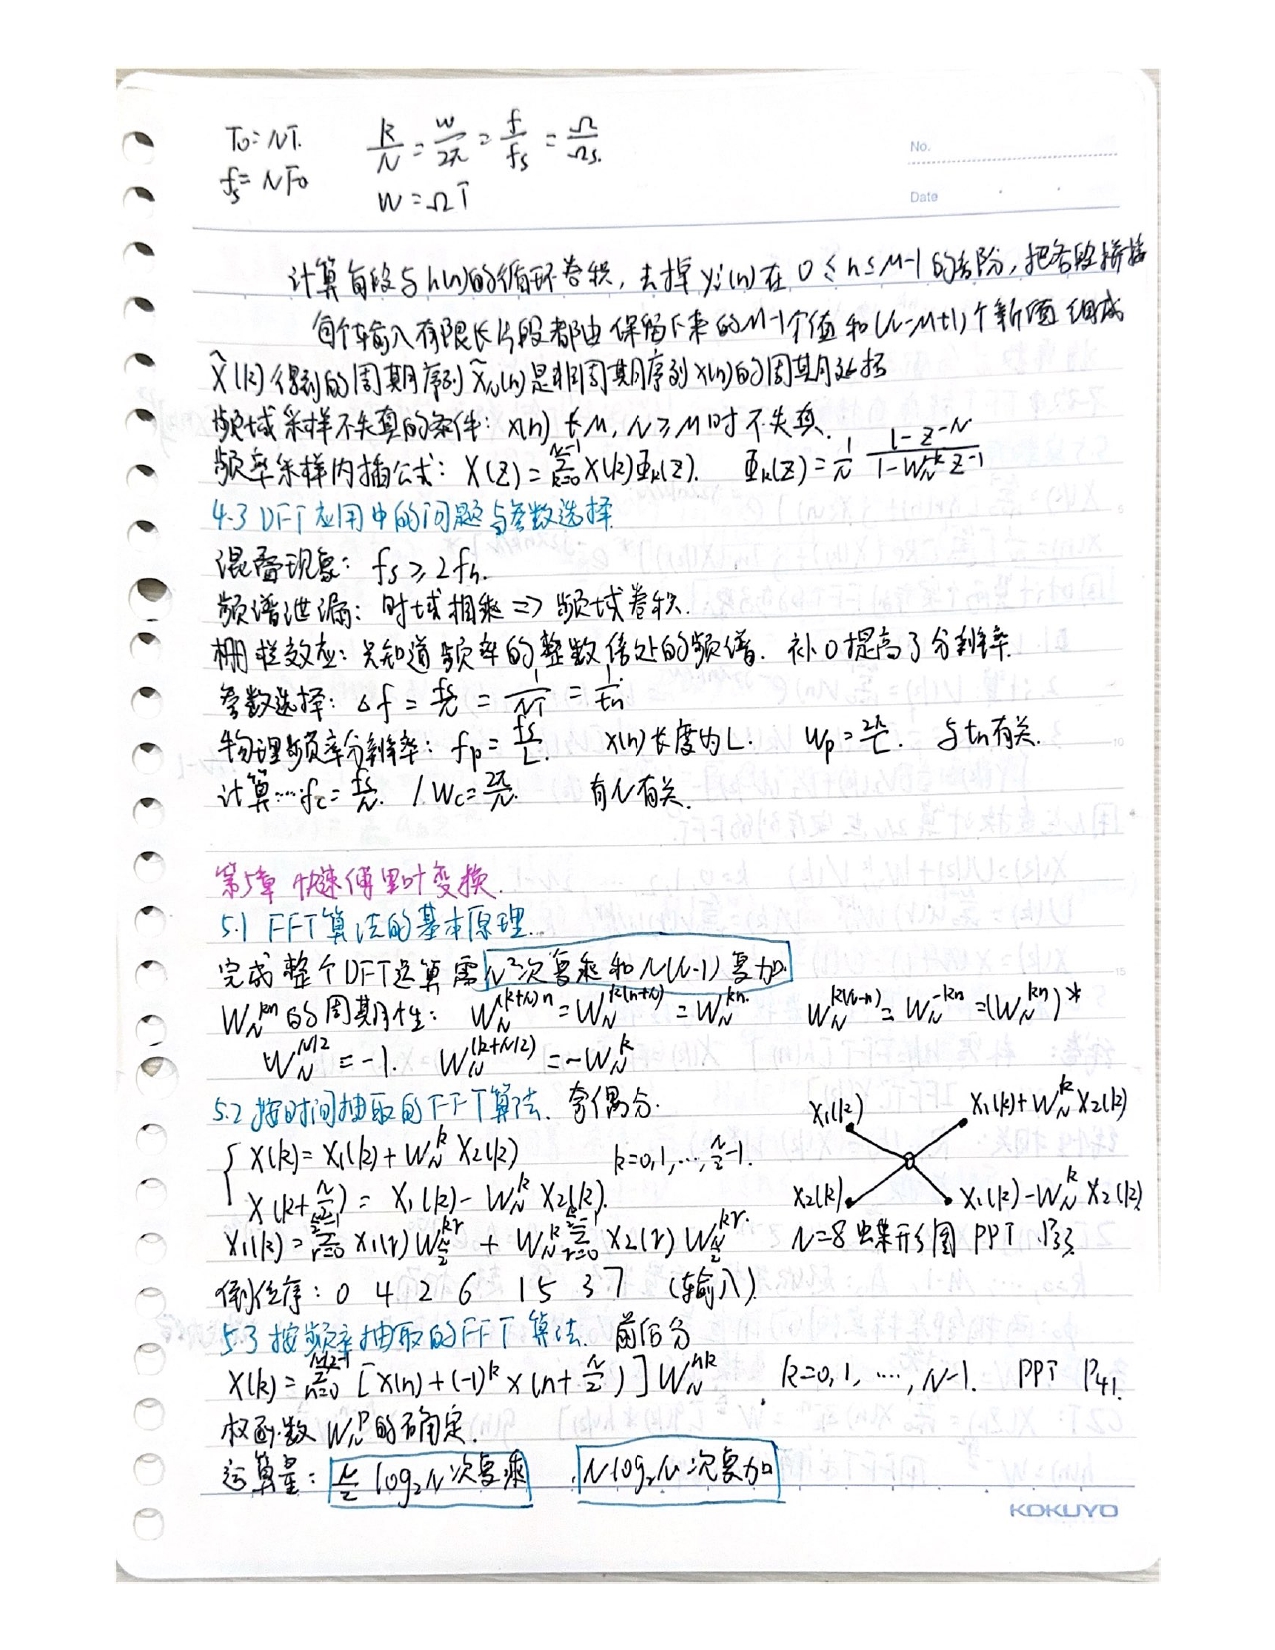 T₀=NT. k/N = w/2π = f/fs = Ω/Ωs.
fs=NF₀ W=ΩT
No.
Date
计算每段与h(n)的循环卷积，去掉yi(n)在0≤n≤M-1的部分，把各段拼接
每个输入有限长片段都由保留下来的M-1个值和(N-M+1)个新值组成
X̃(k)得到的周期序列x̃N(n)是非周期序列x(n)的周期延拓
频域采样不失真的条件：x(n)长M，N≥M时不失真.
频率采样内插公式：X(Z)=Σ_{k=0}^{N-1}X(k)Φk(Z). Φk(Z)=1/N (1-Z^-N)/(1-W_N^-k Z^-1)
4.3 DFT应用中的问题与参数选择
混叠现象：fs≥2fh.
频谱泄漏：时域相乘=>频域卷积.
栅栏效应：只知道频率的整数倍处的频谱. 补0提高了分辨率.
参数选择：Δf=fs/N=1/NT=1/tn.
物理频率分辨率：fp=fs/L. x(n)长度为L. Wp=2π/L. 与tn有关.
计算…fc=fs/N. / Wc=2π/N. 有N有关.
第5章 快速傅里叶变换.
5.1 FFT算法的基本原理.
完成整个DFT运算需N²次复乘和N(N-1)复加
W_N^kn的周期性：W_N^(k+N)n=W_N^k(n+N)=W_N^kn. W_N^k(N-n)=W_N^-kn=(W_N^kn)*
W_N^N/2=-1. W_N^(k+N/2)=-W_N^k
5.2 按时间抽取的FFT算法. 奇偶分.
X₁(k) X₁(k)+W_N^k X₂(k)
{ X(k)=X₁(k)+W_N^k X₂(k) k=0,1,…,N/2-1.
X(k+N/2)=X₁(k)-W_N^k X₂(k).
X₂(k) X₁(k)-W_N^k X₂(k)
X₁(k)=Σ_{r=0}^{N/2-1} x₁(r)W_{N/2}^{kr}+W_N^k Σ_{r=0}^{N/2-1} x₂(r)W_{N/2}^{kr}. N=8蝶形图 PPT P33
倒位序：0 4 2 6 1 5 3 7 (输入)
5.3 按频率抽取的FFT算法. 前后分
X(k)=Σ_{n=0}^{N/2-1}[x(n)+(-1)^k x(n+N/2)]W_N^nk. k=0,1,…,N-1. PPT P41.
权函数W_N^P的确定.
运算量：N/2 log₂N次复乘 . Nlog₂N次复加
KOKUYO